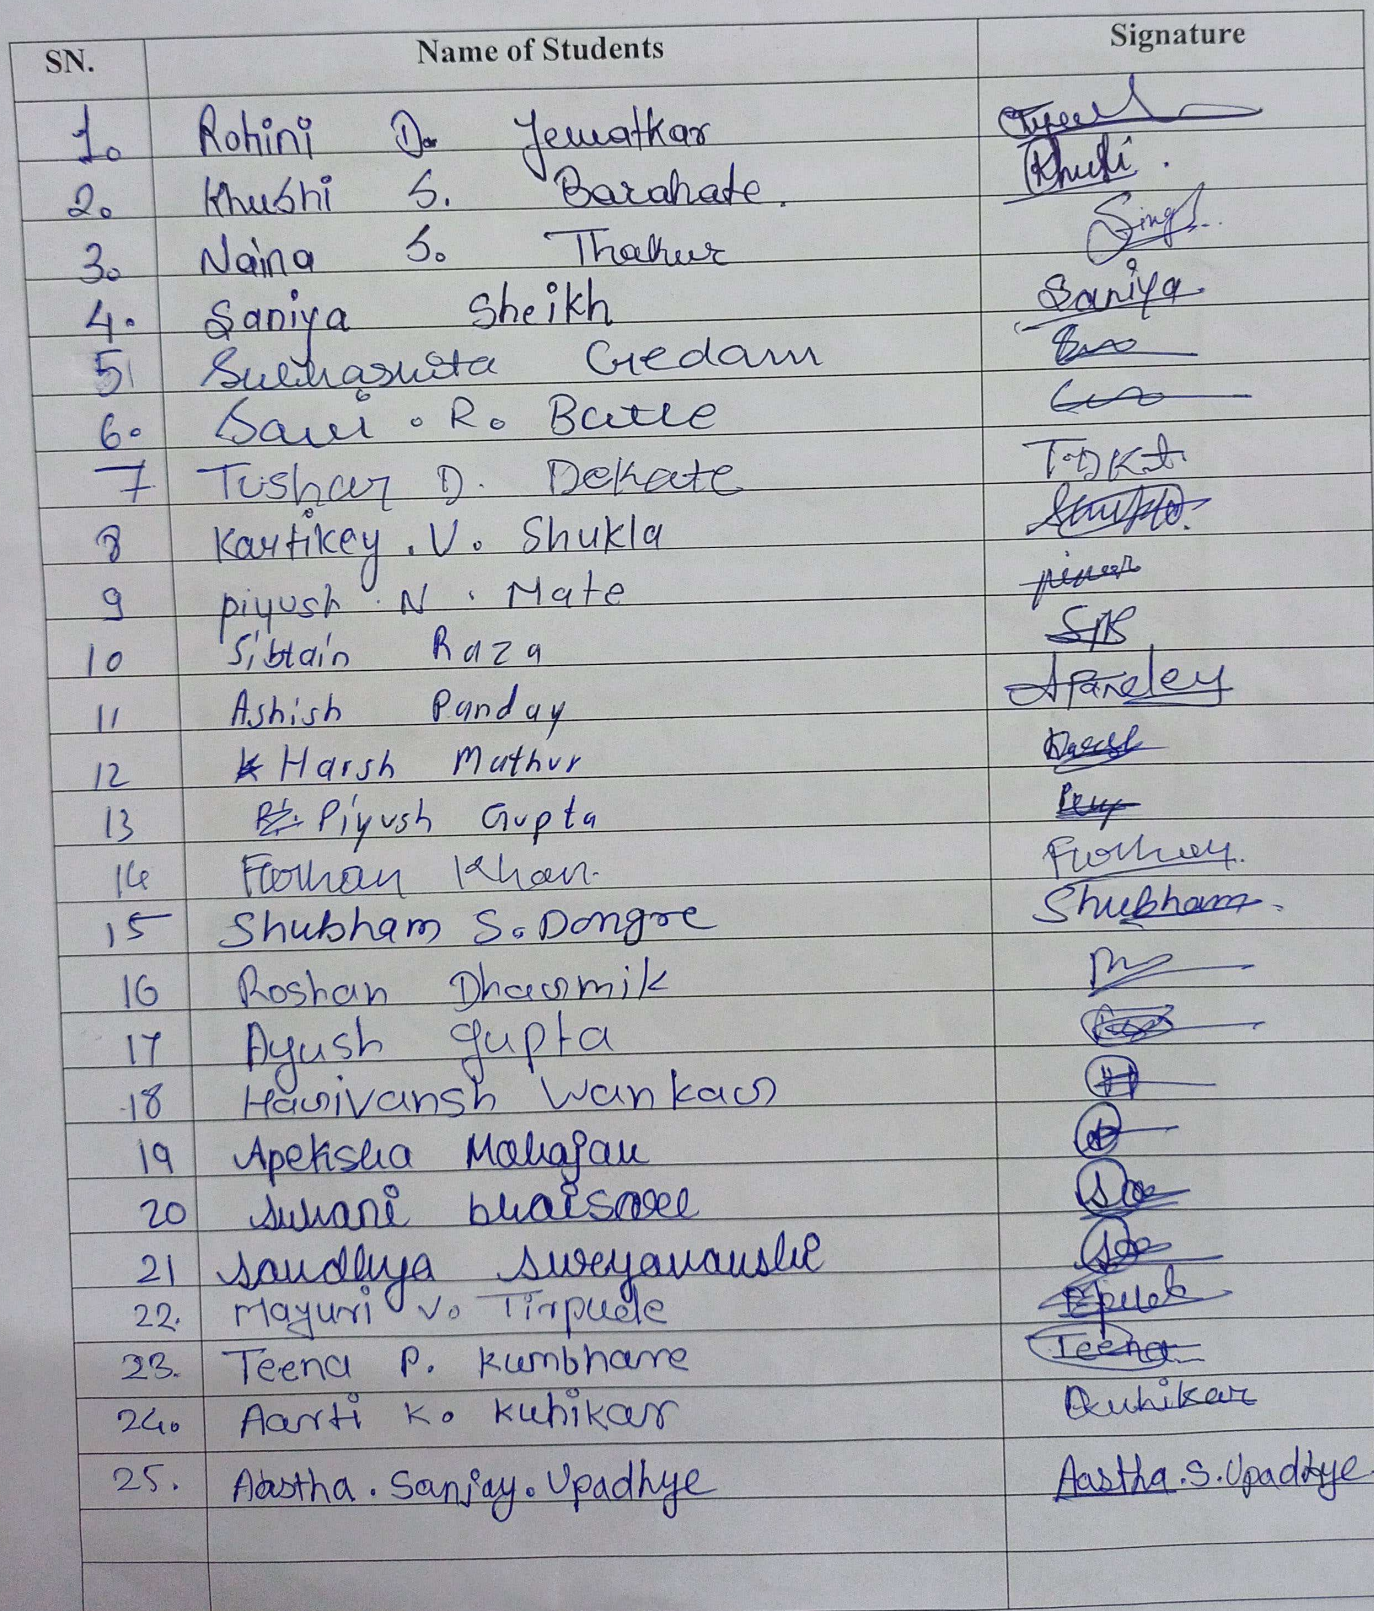 SN. Name of Students Signature
1. Rohini D. Jewatkar
2. Khushi S. Barahate. Khushi.
3. Naina S. Thakur Singh
4. Saniya Sheikh Saniya
5 Gedam
6. R. Batte
7 Tushar D. Dekate T.D.Kt.
8 Kartikey. V. Shukla
9 piyush. N. Mate
10 Sibtain Raza
11 Ashish Panday APandey
12 Harsh Mathur Harsh
13 Piyush Gupta
14 Farhan Khan. Farhan.
15 Shubham S. Dongre Shubham.
16 Roshan Dharmik
17 Ayush gupta
18 Harivansh Wankar
19 Apeksha Mahajan
20 suhani bhaisare
21 sandhya
22. Mayuri V. Tirpude
23. Teena P. Kumbhare Teena
24. Aarti K. Kuhikar AKuhikar
25. Aastha. Sanjay. Upadhye Aastha.S.Upadhye